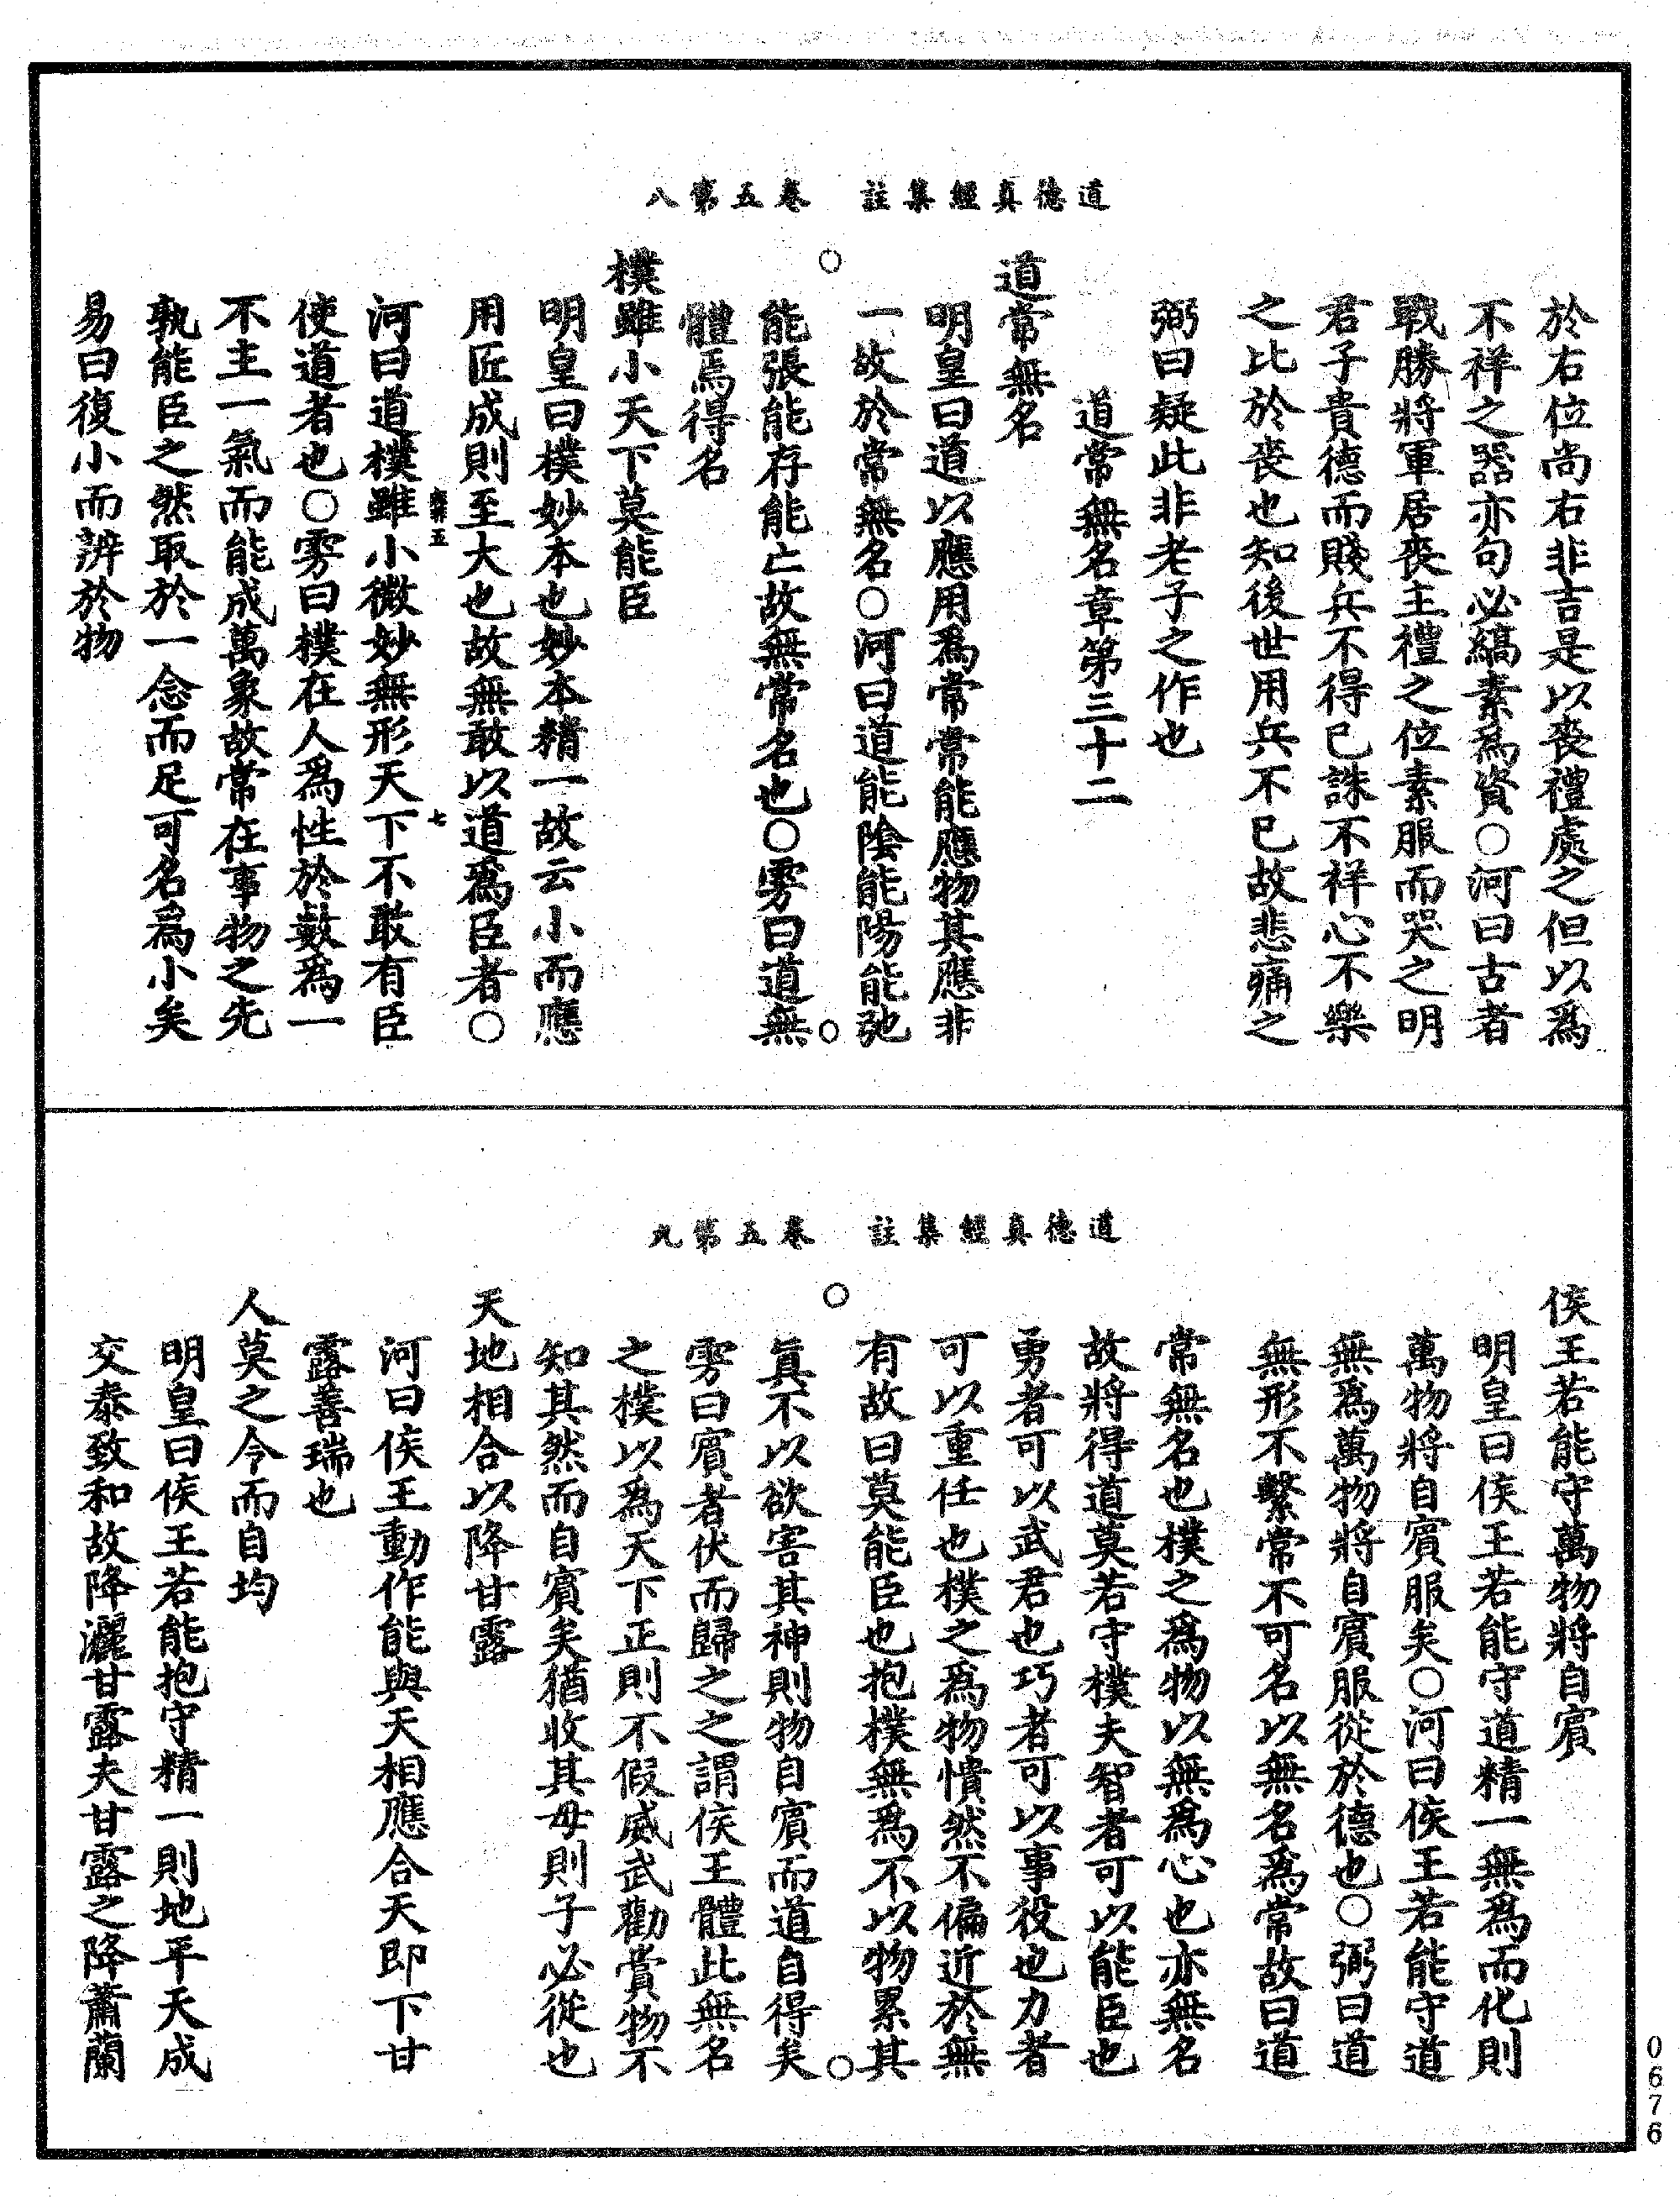 道德真經集註　卷五第八
於右位尚右非吉是以喪禮處之但以爲
不祥之器亦句必縞素爲資〇河曰古者
戰勝將軍居喪主禮之位素服而哭之明
君子貴德而賤兵不得已誅不祥心不樂
之比於喪也知後世用兵不已故悲痛之
弼曰疑此非老子之作也
道常無名章第三十二
道常無名
明皇曰道以應用爲常常能應物其應非
一故於常無名〇河曰道能陰能陽能弛
能張能存能亡故無常名也〇雱曰道無
體焉得名
樸雖小天下莫能臣
明皇曰樸妙本也妙本精一故云小而應
用匠成則至大也故無敢以道爲臣者〇
河曰道樸雖小微妙無形天下不敢有臣
使道者也〇雱曰樸在人爲性於數爲一
不主一氣而能成萬象故常在事物之先
孰能臣之然取於一念而足可名爲小矣
易曰復小而辨於物
道德真經集註　卷五第九
侯王若能守萬物將自賓
明皇曰侯王若能守道精一無爲而化則
萬物將自賓服矣〇河曰侯王若能守道
無爲萬物將自賓服從於德也〇弼曰道
無形不繫常不可名以無名爲常故曰道
常無名也樸之爲物以無爲心也亦無名
故將得道莫若守樸夫智者可以能臣也
勇者可以武君也巧者可以事役也力者
可以重任也樸之爲物憒然不偏近於無
有故曰莫能臣也抱樸無爲不以物累其
真不以欲害其神則物自賓而道自得矣
雱曰賓者伏而歸之之謂侯王體此無名
之樸以爲天下正則不假威武勸賞物不
知其然而自賓矣猶收其母則子必從也
天地相合以降甘露
河曰侯王動作能與天相應合天即下甘
露善瑞也
人莫之令而自均
明皇曰侯王若能抱守精一則地平天成
交泰致和故降灑甘露夫甘露之降蕭蘭
0676